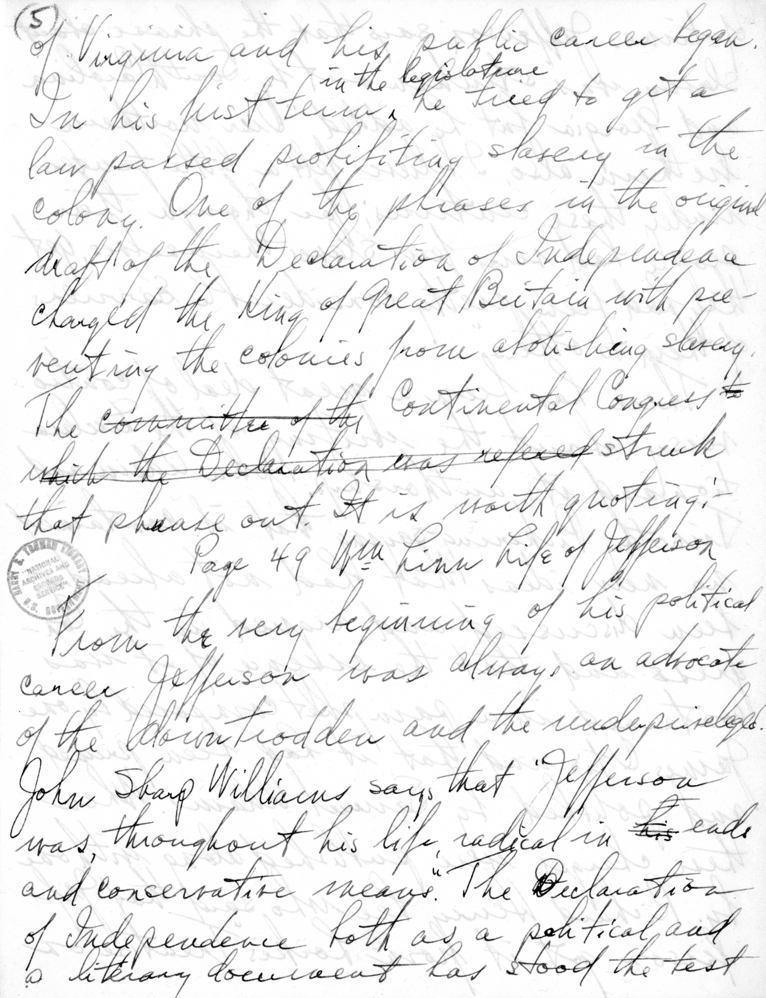 (5)
of Virginia and his public career began.
in the legislature
In his first term, he tried to get a
law passed prohibiting slavery in the
colony. One of the phrases in the original
draft of the Declaration of Independence
charged the King of Great Britain with pre-
venting the colonies from abolishing slavery.
The committee of the Continental Congress to
which the Declaration was refered struck
that phrase out. It is worth quoting:-
Page 49 Wm Linn Life of Jefferson
HARRY S. TRUMAN LIBRARY
"NATIONAL ARCHIVES AND RECORDS SERVICE"
U.S. GOVERNMENT
From the very beginning of his political
career Jefferson was always an advocate
of the downtrodden and the underpriveleged.
John Sharp Williams says that "Jefferson
was, throughout his life, radical in his ends
and conservative means". The Declaration
of Independence both as a political and
a literary document has stood the test